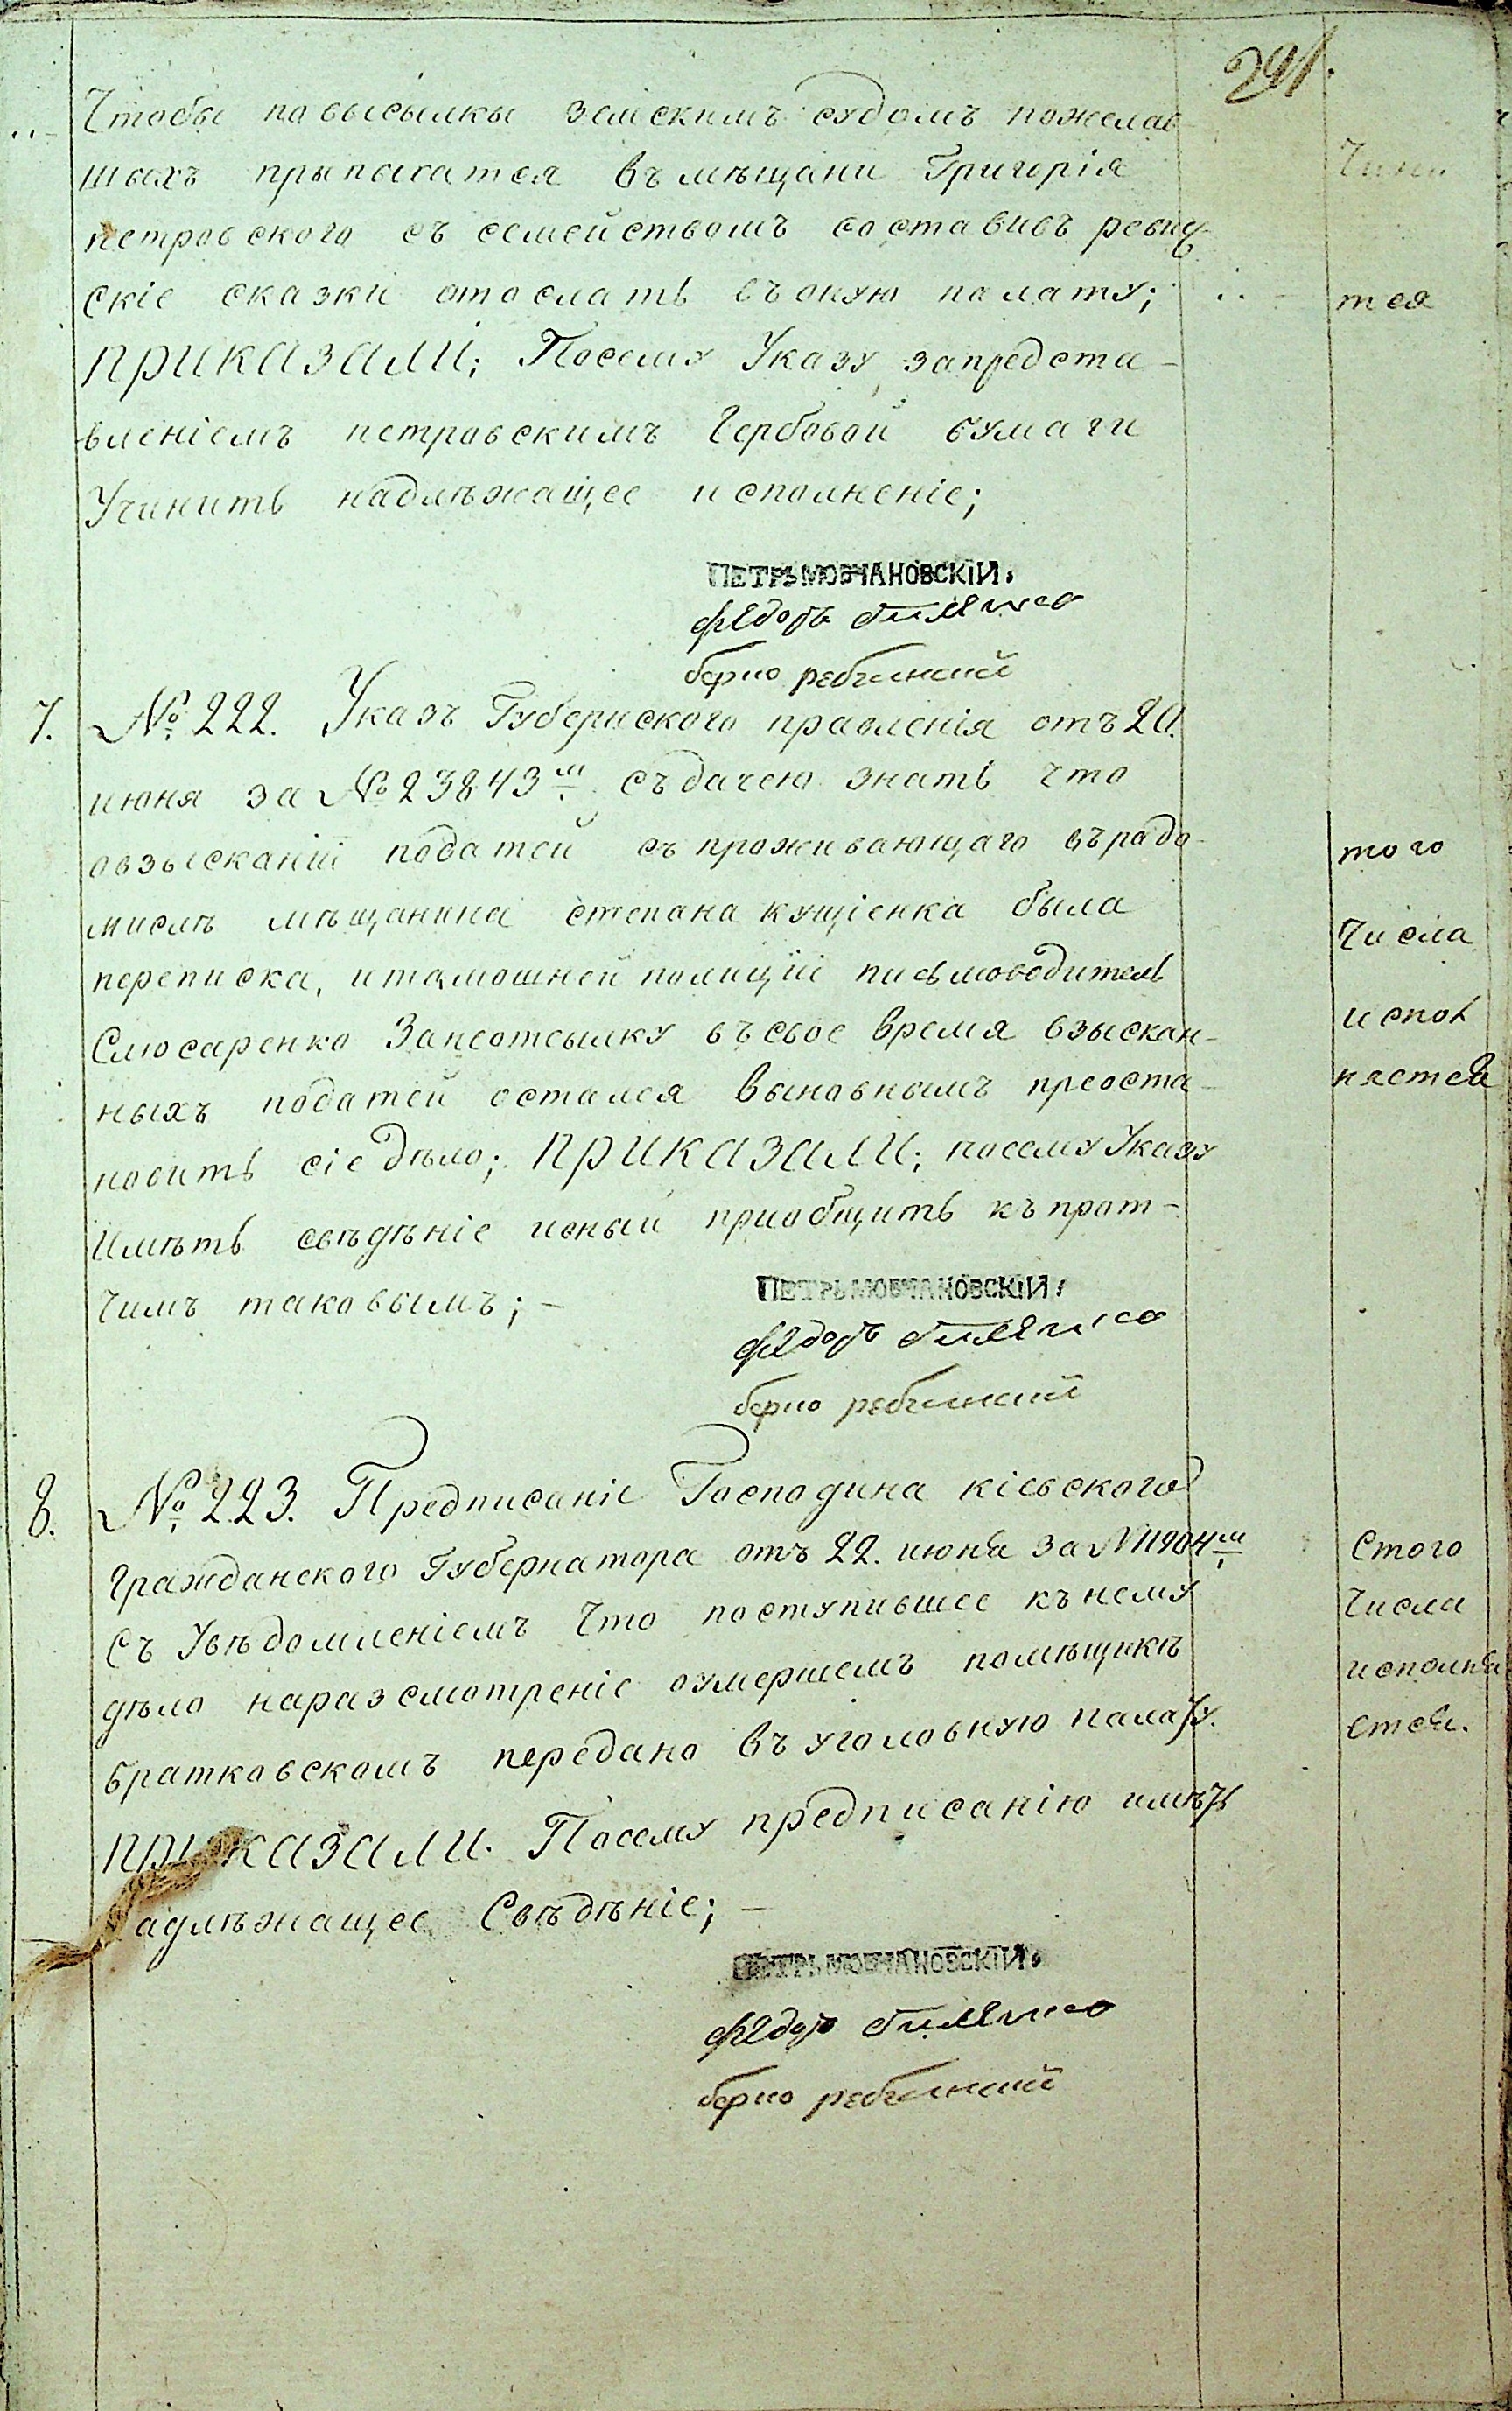 291.
Чтобы повысылкы земскимъ судомъ пожелав
шыхъ прыписатся въ мѣщани Григорія
петровского съ семействомъ составивъ ревиз
скіе сказки отослать въ оную палату;
приказали; Посему Указу запредста-
вленіемъ петровскимъ Гербовой бумаги
Учинить надлѣжащее исполненіе;
Чини
тся
ПЕТРЪ МОВЧАНОВСКІЙ.
федоръ
берко
7. № 222. Указъ Губернского правленія отъ 20.
июня за № 23843м съдачею знать что
овзысканіи податей съ проживающаго върадо-
мислѣ мѣщанина степана кущіенка была
переписка, итамошней полиціи письмоводитель
Слюсаренко Занеотсылку въсвое время взыскан-
ныхъ податей остался выновнымъ преоста-
новить сіе дѣло; приказали; посему Указу
Имѣть свѣдѣніе ионый приобщить къ прот-
чимъ таковымъ; -
того
Числа
испол
няется
ПЕТРЪ МОВЧАНОВСКІЙ.
федоръ
берко
8. № 223. Предписаніе Господина кіевского
Гражданского Губернатора отъ 22. июня за № 11904м
Съ Увѣдомленіемъ Что поступившее къ нему
дѣло наразсмотреніе оумершемъ помѣщикѣ
братковскомъ передано въ уголовную палату.
приказали. Посему предписанію имѣть
адлѣжащее Свѣдѣніе; -
Стого
Числа
исполня
ется.
ПЕТРЪ МОВЧАНОВСКІЙ.
федоръ
берко